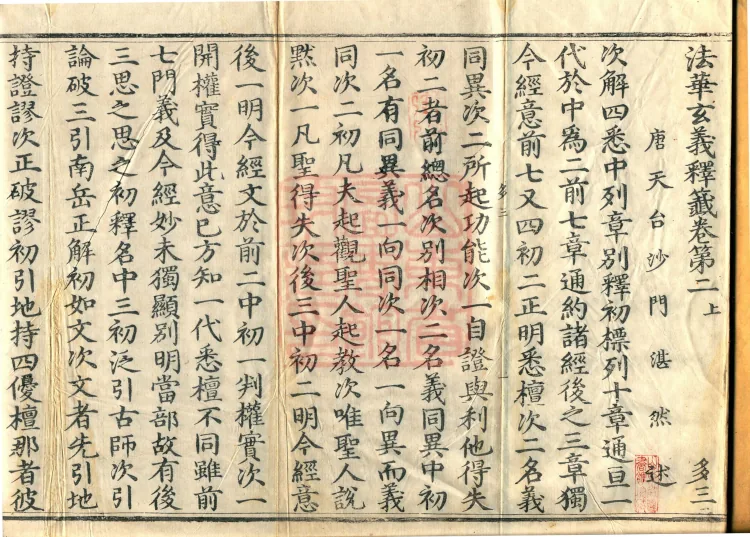 法華玄義釋籤卷第二上 多三
唐天台沙門湛然 述
次解四悉中列章別釋初標列十章通亘一
代於中為二前七章通約諸經後之三章獨
今經意前七又四初二正明悉檀次二名義
同異次二所起功能次一自證與利他得失
初二者前總名次別相次二名義同異中初
一名有同異義一向同次一名一向異而義
同次二初凡夫起觀聖人起教次唯聖人說
黙次一凡聖得失次後三中初二明今經意
後一明今經文於前二中初一判權實次一
開權實得此意已方知一代悉檀不同雖前
七門義及今經妙未獨顯別明當部故有後
三思之思之初釋名中三初泛引古師次引
論破三引南岳正解初如文次文者先引地
持證謬次正破謬初引地持四優檀那者彼
多三